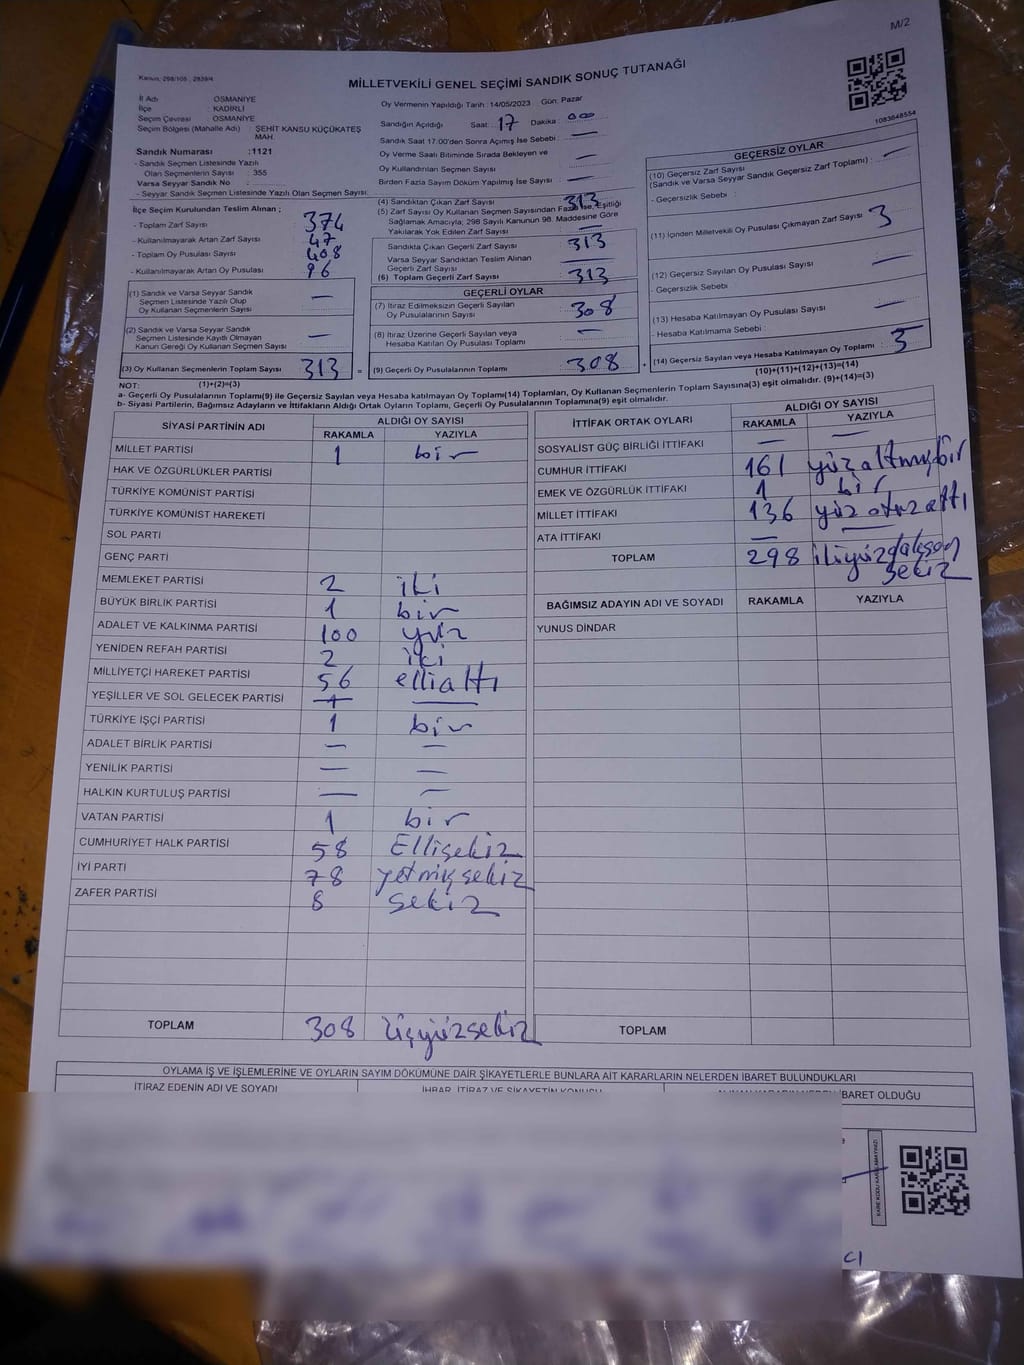 M/2
Kanun, 298/105 , 2839/4
MİLLETVEKİLİ GENEL SEÇİMİ SANDIK SONUÇ TUTANAĞI
1083648554
İl Adı OSMANİYE
İlçe KADİRLİ
Seçim Çevresi OSMANİYE
Seçim Bölgesi (Mahalle Adı) : ŞEHİT KANSU KÜÇÜKATEŞ MAH.
Sandık Numarası :1121
- Sandık Seçmen Listesinde Yazılı
Olan Seçmenlerin Sayısı : 355
Varsa Seyyar Sandık No :
- Seyyar Sandık Seçmen Listesinde Yazılı Olan Seçmen Sayısı:
İlçe Seçim Kurulundan Teslim Alınan ;
- Toplam Zarf Sayısı 374
- Kullanılmayarak Artan Zarf Sayısı 47
- Toplam Oy Pusulası Sayısı 408
- Kullanılmayarak Artan Oy Pusulası 96
(1) Sandık ve Varsa Seyyar Sandık
Seçmen Listesinde Yazılı Olup
Oy Kullanan Seçmenlerin Sayısı —
(2) Sandık ve Varsa Seyyar Sandık
Seçmen Listesinde Kayıtlı Olmayan
Kanun Gereği Oy Kullanan Seçmen Sayısı —
(3) Oy Kullanan Seçmenlerin Toplam Sayısı 313 =
(1)+(2)=(3)
Oy Vermenin Yapıldığı Tarih : 14/05/2023 Gün: Pazar
Sandığın Açıldığı Saat: 17 Dakika: 00
Sandık Saat 17.00'den Sonra Açılmış İse Sebebi: —
Oy Verme Saati Bitiminde Sırada Bekleyen ve
Oy Kullandırılan Seçmen Sayısı —
Birden Fazla Sayım Döküm Yapılmış İse Sayısı : —
(4) Sandıktan Çıkan Zarf Sayısı 313
(5) Zarf Sayısı Oy Kullanan Seçmen Sayısından Fazla İse, Eşitliği
Sağlamak Amacıyla, 298 Sayılı Kanunun 98. Maddesine Göre
Yakılarak Yok Edilen Zarf Sayısı —
Sandıkta Çıkan Geçerli Zarf Sayısı 313
Varsa Seyyar Sandıktan Teslim Alınan
Geçerli Zarf Sayısı —
(6) Toplam Geçerli Zarf Sayısı 313
GEÇERLİ OYLAR
(7) İtiraz Edilmeksizin Geçerli Sayılan
Oy Pusulalarının Sayısı 308
(8) İtiraz Üzerine Geçerli Sayılan veya
Hesaba Katılan Oy Pusulası Toplamı —
(9) Geçerli Oy Pusulalarının Toplamı 308 +
GEÇERSİZ OYLAR
(10) Geçersiz Zarf Sayısı
(Sandık ve Varsa Seyyar Sandık Geçersiz Zarf Toplamı) : —
- Geçersizlik Sebebi :
(11) İçinden Milletvekili Oy Pusulası Çıkmayan Zarf Sayısı 3
(12) Geçersiz Sayılan Oy Pusulası Sayısı —
- Geçersizlik Sebebi :
(13) Hesaba Katılmayan Oy Pusulası Sayısı —
- Hesaba Katılmama Sebebi :
(14) Geçersiz Sayılan veya Hesaba Katılmayan Oy Toplamı :
(10)+(11)+(12)+(13)=(14)
NOT:
a- Geçerli Oy Pusulalarının Toplamı(9) ile Geçersiz Sayılan veya Hesaba katılmayan Oy Toplamı(14) Toplamları, Oy Kullanan Seçmenlerin Toplam Sayısına(3) eşit olmalıdır. (9)+(14)=(3)
b- Siyasi Partilerin, Bağımsız Adayların ve İttifakların Aldığı Ortak Oyların Toplamı, Geçerli Oy Pusulalarının Toplamına(9) eşit olmalıdır.
SİYASİ PARTİNİN ADI ALDIĞI OY SAYISI
RAKAMLA YAZIYLA
MİLLET PARTİSİ 1 bir
HAK VE ÖZGÜRLÜKLER PARTİSİ
TÜRKİYE KOMÜNİST PARTİSİ
TÜRKİYE KOMÜNİST HAREKETİ
SOL PARTİ
GENÇ PARTİ
MEMLEKET PARTİSİ 2 iki
BÜYÜK BİRLİK PARTİSİ 1 bir
ADALET VE KALKINMA PARTİSİ 100 yüz
YENİDEN REFAH PARTİSİ 2 iki
MİLLİYETÇİ HAREKET PARTİSİ 56 ellialtı
YEŞİLLER VE SOL GELECEK PARTİSİ —
TÜRKİYE İŞÇİ PARTİSİ 1 bir
ADALET BİRLİK PARTİSİ — —
YENİLİK PARTİSİ — —
HALKIN KURTULUŞ PARTİSİ — —
VATAN PARTİSİ 1 bir
CUMHURİYET HALK PARTİSİ 58 Ellisekiz
İYİ PARTİ 78 yetmişsekiz
ZAFER PARTİSİ 8 sekiz
TOPLAM 308 üçyüzsekiz
İTTİFAK ORTAK OYLARI ALDIĞI OY SAYISI
RAKAMLA YAZIYLA
SOSYALİST GÜÇ BİRLİĞİ İTTİFAKI — —
CUMHUR İTTİFAKI 161 yüzaltmışbir
EMEK VE ÖZGÜRLÜK İTTİFAKI 1 bir
MİLLET İTTİFAKI 136 yüzotuzaltı
ATA İTTİFAKI — —
TOPLAM 298 ikiyüzdoksan
sekiz
BAĞIMSIZ ADAYIN ADI VE SOYADI RAKAMLA YAZIYLA
YUNUS DİNDAR
TOPLAM
OYLAMA İŞ VE İŞLEMLERİNE VE OYLARIN SAYIM DÖKÜMÜNE DAİR ŞİKAYETLERLE BUNLARA AİT KARARLARIN NELERDEN İBARET BULUNDUKLARI
İTİRAZ EDENİN ADI VE SOYADI İHBAR, İTİRAZ VE ŞİKAYETİN KONUSU ALINAN KARARIN NEDEN İBARET OLDUĞU